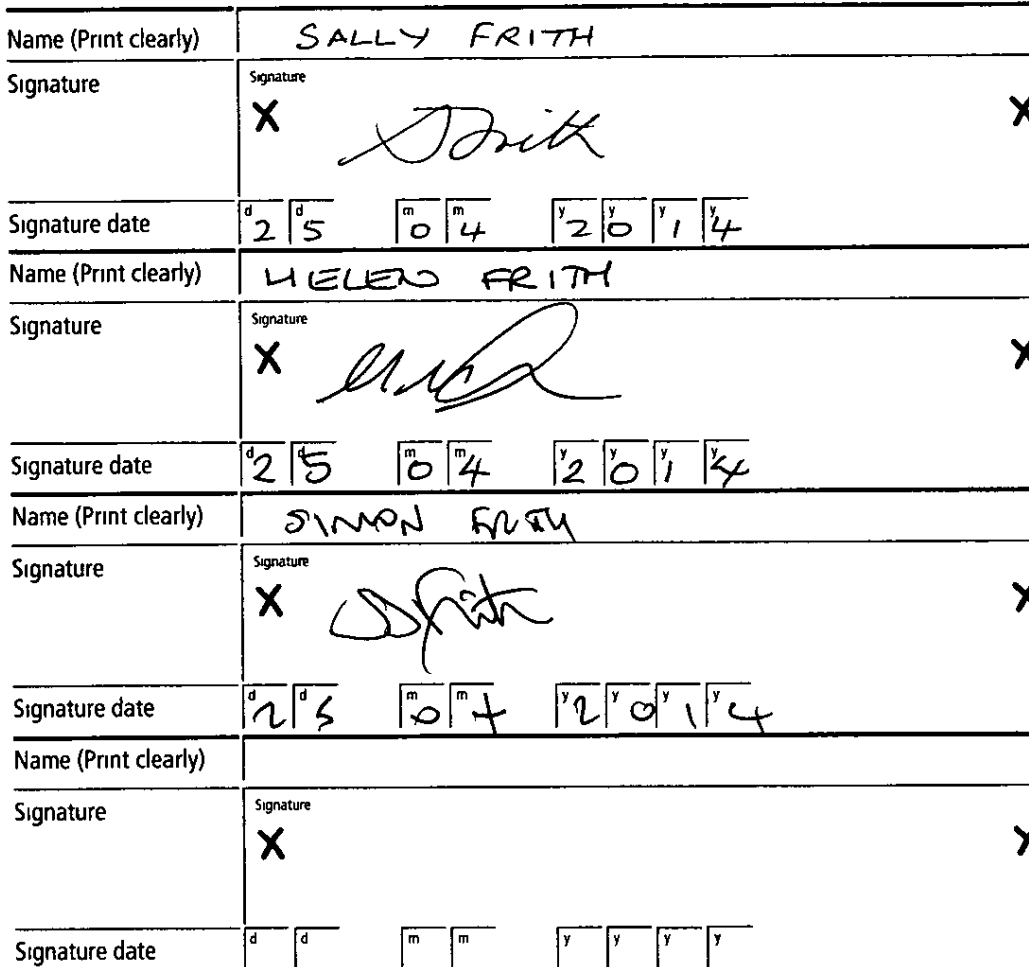 Name (Print clearly) SALLY FRITH
Signature
Signature
X SFrith X
Signature date d2 d5 m0 m4 y2 y0 y1 y4
Name (Print clearly) HELEN FRITH
Signature
Signature
X X
Signature date d2 d5 m0 m4 y2 y0 y1 y4
Name (Print clearly) SIMON FRITH
Signature
Signature
X SFrith X
Signature date d2 d5 m0 m4 y2 y0 y1 y4
Name (Print clearly)
Signature
Signature
X X
Signature date d d m m y y y y